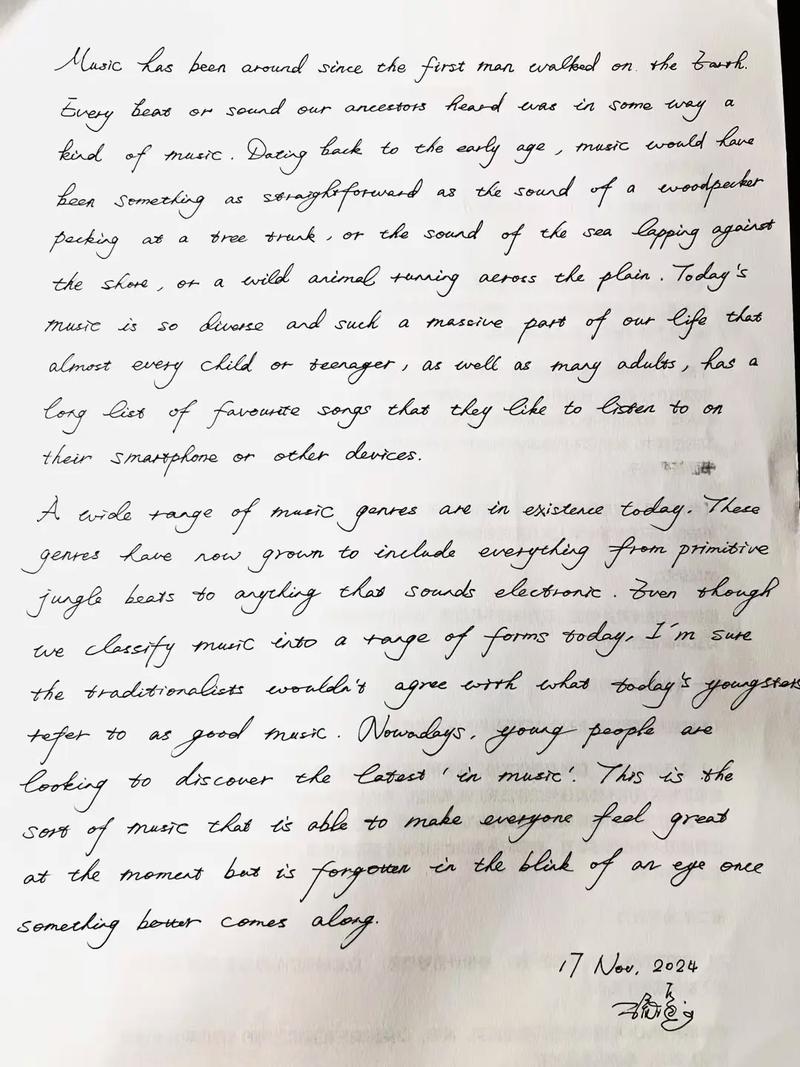 Music has been around since the first man walked on the Earth.
Every beat or sound our ancestors heard was in some way a
kind of music. Dating back to the early age, music would have
been something as straightforward as the sound of a woodpecker
pecking at a tree trunk, or the sound of the sea lapping against
the shore, or a wild animal running across the plain. Today's
music is so diverse and such a massive part of our life that
almost every child or teenager, as well as many adults, has a
long list of favourite songs that they like to listen to on
their smartphone or other devices.
A wide range of music genres are in existence today. These
genres have now grown to include everything from primitive
jungle beats to anything that sounds electronic. Even though
we classify music into a range of forms today, I'm sure
the traditionalists wouldn't agree with what today's youngsters
refer to as good music. Nowadays, young people are
looking to discover the latest 'in music'. This is the
sort of music that is able to make everyone feel great
at the moment but is forgotten in the blink of an eye once
something better comes along.
17 Nov, 2024